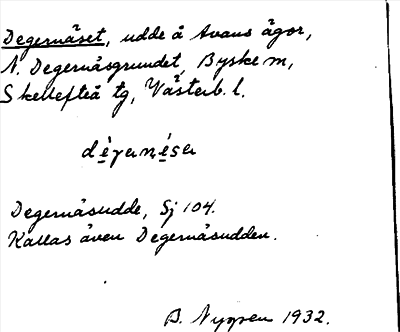 Degernäset, udde å Avans ägor,
N. Degernäsgrundet, Byske m,
Skellefteå tg, Västerb. l.
dè̱γɐnè̱sɐ
Degernäsudde, Sj 104.
Kallas även Degernäsudden.
B. Nyppen 1932.